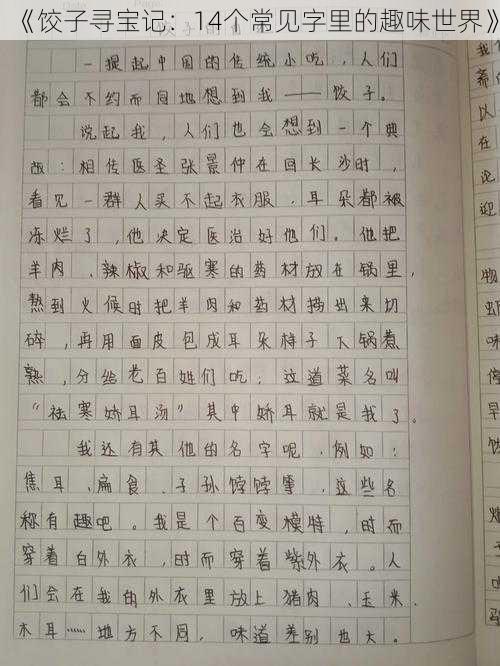 《饺子寻宝记：14个常见字里的趣味世界》
一提起中国的传统小吃，人们
都会不约而同地想到我——饺子。
说起我，人们也会想到一个典
故：相传医圣张景仲在回长沙时，
看见一群人买不起衣服，耳朵都被
冻烂了，他决定医治好他们。他把
羊肉、辣椒和驱寒的药材放在锅里，
熬到火候时把羊肉和药材捞出来切
碎，再用面皮包成耳朵样子下锅煮
熟，分给老百姓们吃；这道菜名叫
“祛寒娇耳汤”其中娇耳就是我了。
我还有其他的名字呢，例如：
焦耳、扁食、子孙饽饽等，这些名
称有趣吧。我是个百变模特，时而
穿着白外衣，时而穿着紫外衣。人
们会在我的外衣里放上猪肉、玉米、
木耳……地方不同，味道差别也大。